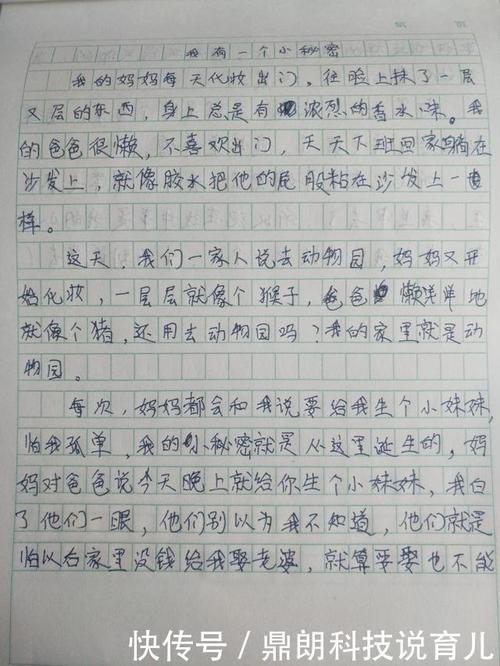 我有一个小秘密
我的妈妈每天化妆出门，往脸上抹了一层
又层的东西，身上总是有浓烈的香水味。我
的爸爸很懒，不喜欢出门，天天下班回家躺在
沙发上，就像胶水把他的屁股粘在沙发上一
样。
这天，我们一家人说去动物园，妈妈又开
始化妆，一层层就像个猴子，爸爸懒洋洋地
就像个猪，还用去动物园吗？我的家里就是动
物园。
每次，妈妈都会和我说要给我生个小妹妹，
怕我孤单，我的小秘密就是从这里诞生的，妈
妈对爸爸说今天晚上就给你生个小妹妹，我白
了他们一眼，他们别以为我不知道，他们就是
怕以后家里没钱给我娶老婆，就算要娶也不能
快传号/鼎朗科技说育儿